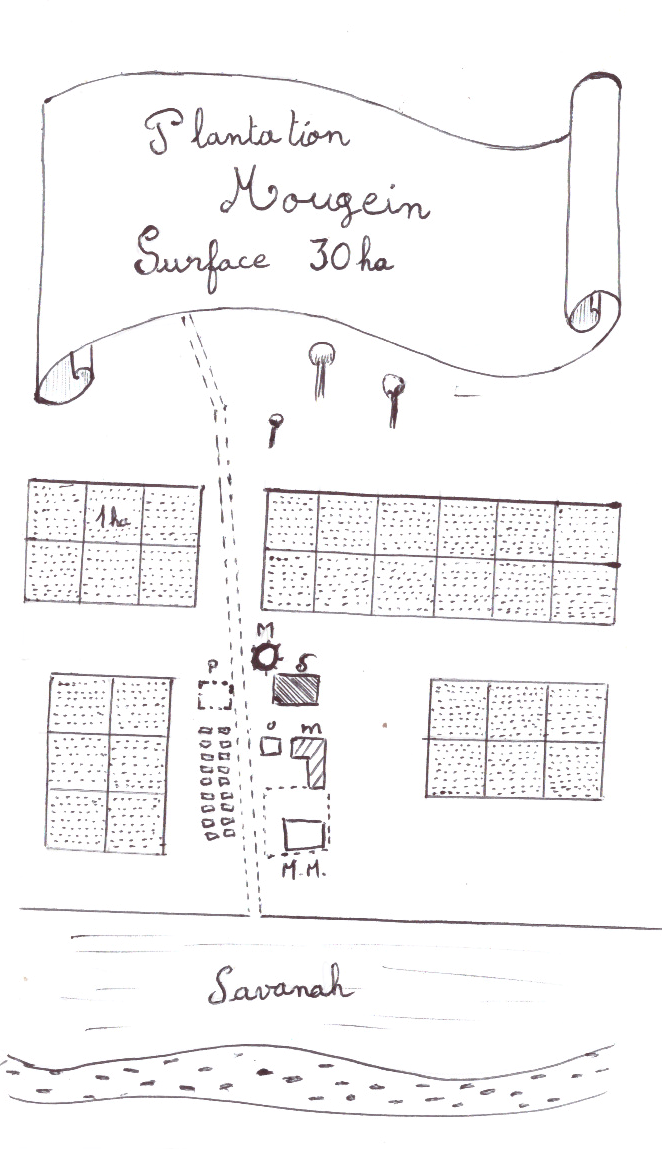 Plantation
Mougein
Surface 30 ha
1 ha
M
P
S
m
M.M.
Savanah